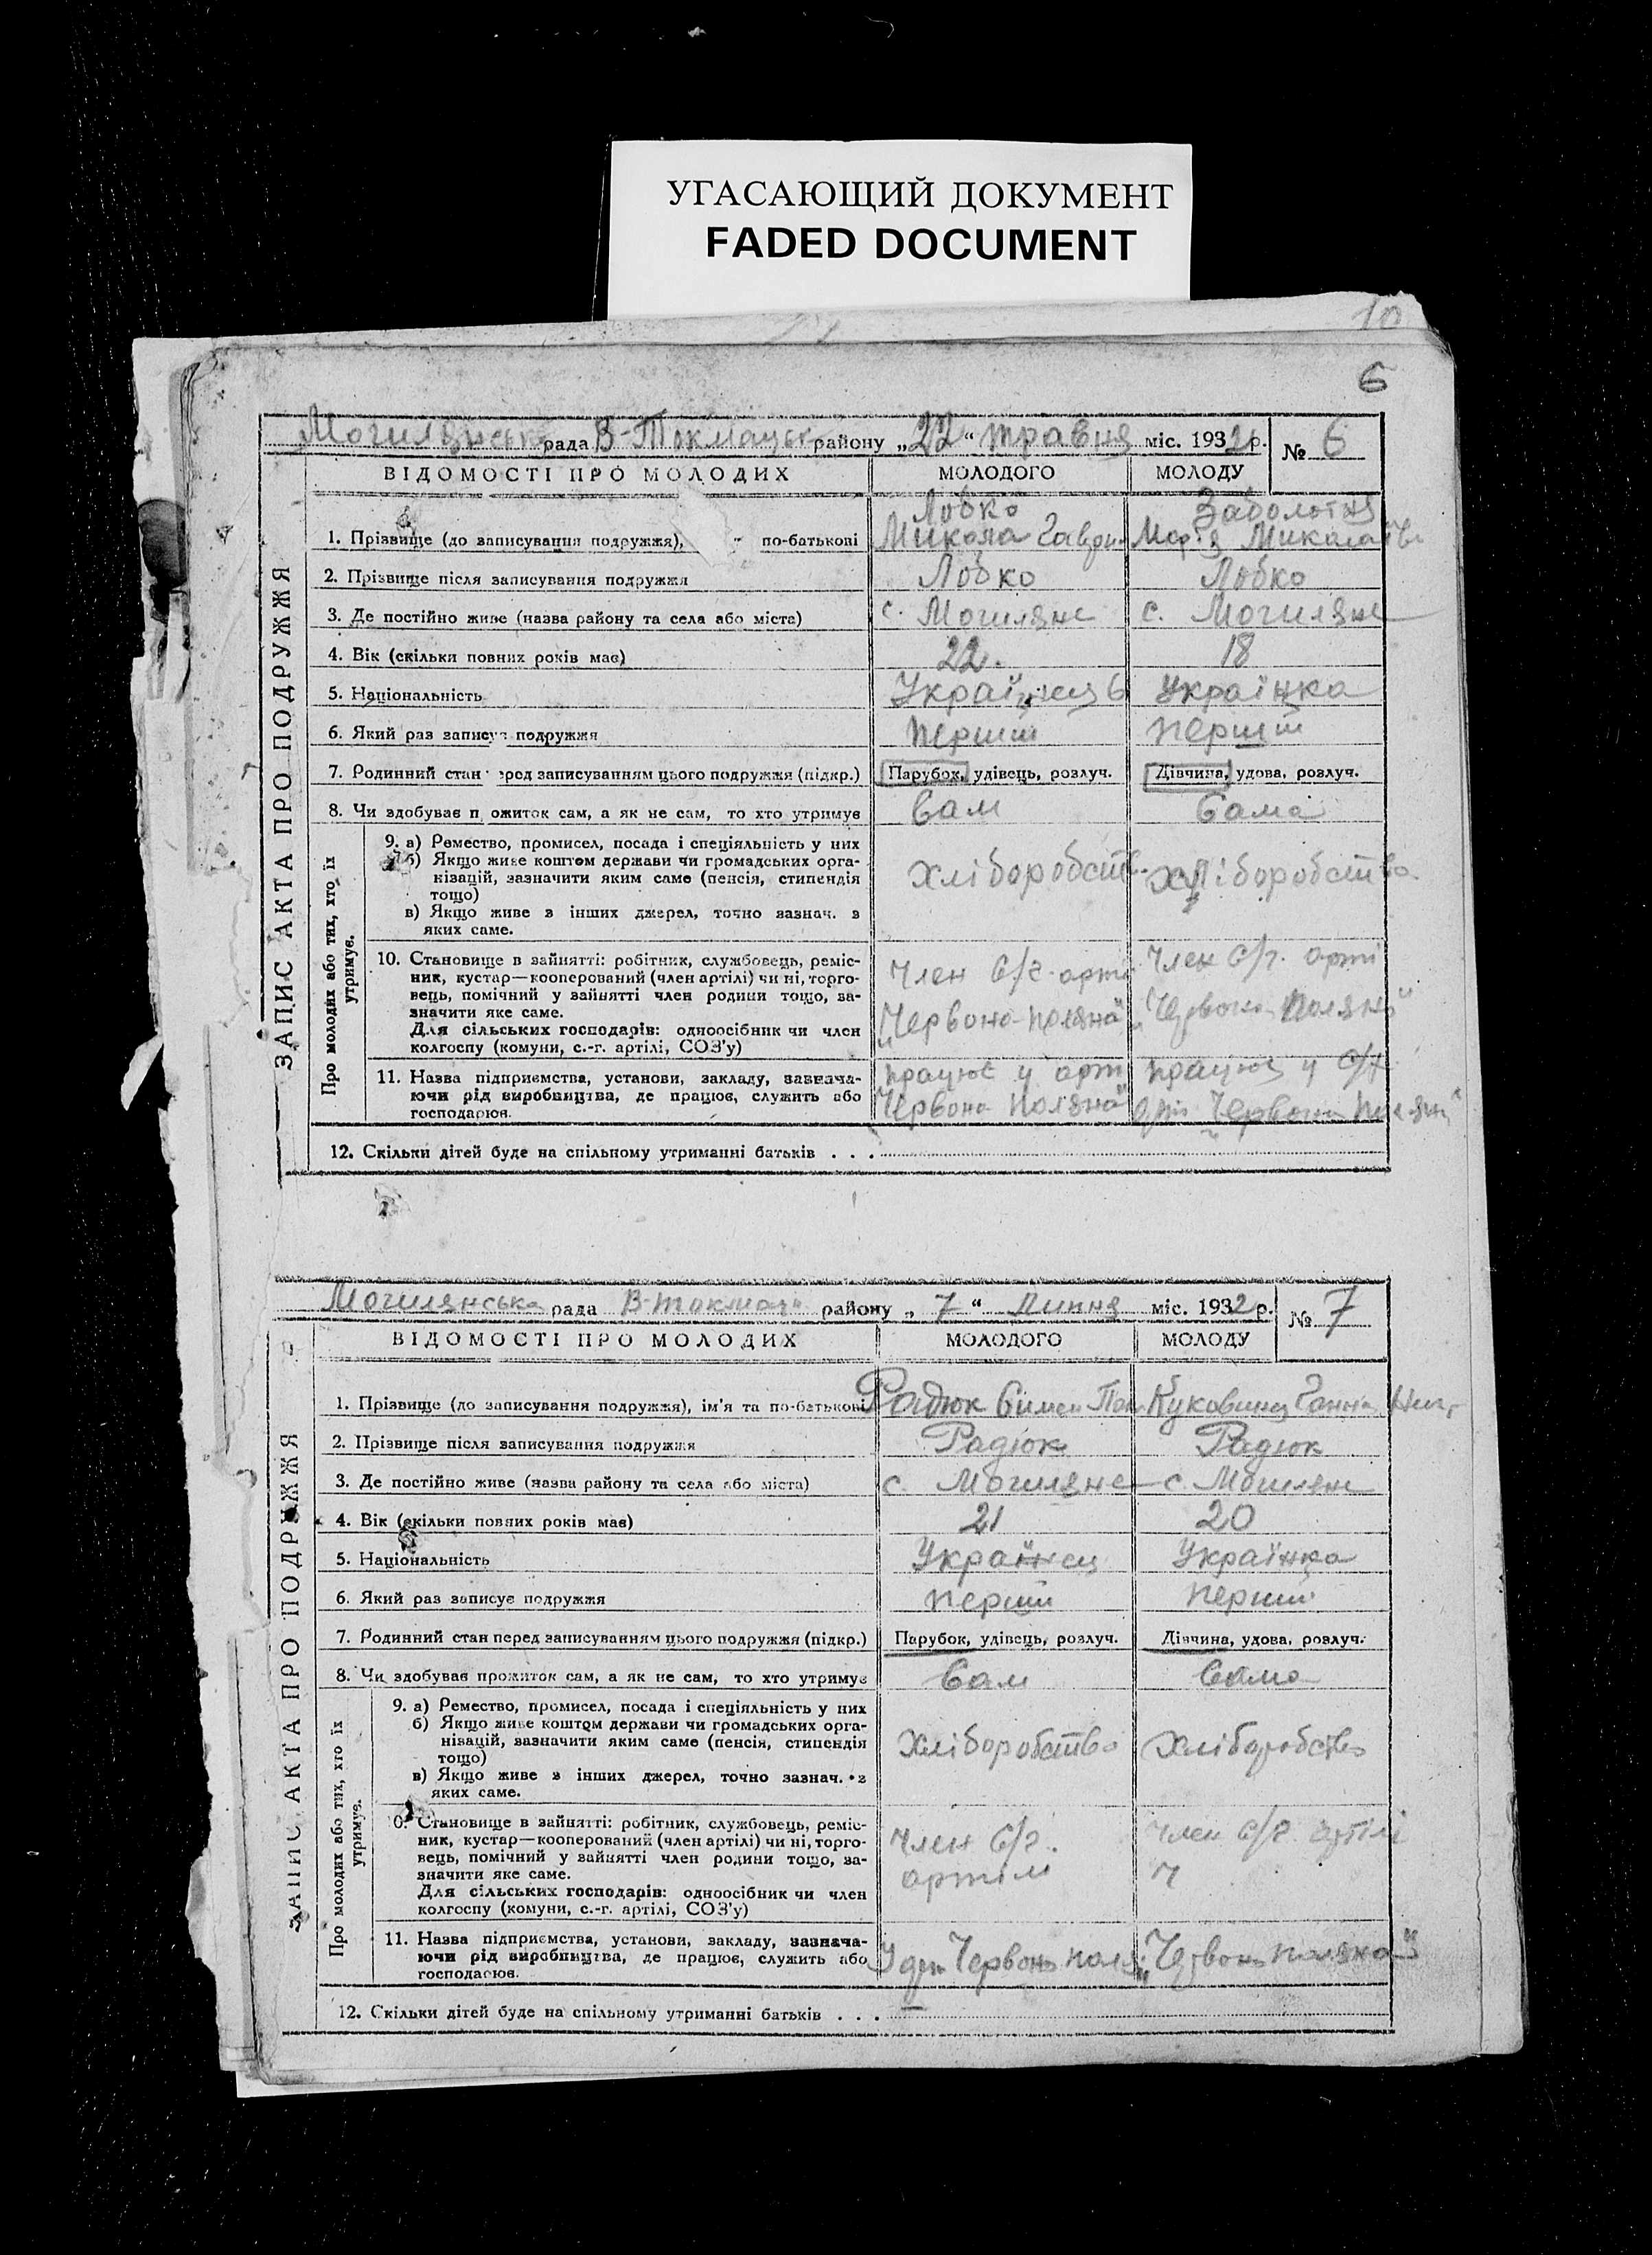 УГАСАЮЩИЙ ДОКУМЕНТ
FADED DOCUMENT
10
6
Могилянська рада В-Токмацьк району „22“ травня міс. 1932 р. № 6
ЗАПИС АКТА ПРО ПОДРУЖЖЯ
ВІДОМОСТІ ПРО МОЛОДИХ МОЛОДОГО МОЛОДУ
Лобко Заболотня
1. Прізвище (до записування подружжя), по-батькові Микола Гаври Марія Миколаївн
2. Прізвище після записування подружжя Лобко Лобко
3. Де постійно живе (назва району та села або міста) с. Могиляне с. Могиляне
4. Вік (скільки повних років має) 22. 18
5. Національність Українец Українка
6. Який раз записує подружжя перший перший
7. Родинний стан перед записуванням цього подружжя (підкр.) Парубок, удівець, розлуч. Дівчина, удова, розлуч.
8. Чи здобуває прожиток сам, а як не сам, то хто утримує Сам Сама
Про молодих або тих, хто їх утримує.
9. а) Ремество, промисел, посада і спеціяльність у них
б) Якщо живе коштом держави чи громадських орга-
нізацій, зазначити яким саме (пенсія, стипендія Хліборобств Хліборобство
тощо)
в) Якщо живе з інших джерел, точно зазнач. з
яких саме.
10. Становище в зайнятті: робітник, службовець, реміс-
ник, кустар—кооперований (член артілі) чи ні, торго- Член С/г. арті Член С/г. арті
вець, помічний у зайнятті член родини тощо, за-
значити яке саме. „Червона поляна“ „Червона поляна“
Для сільських господарів: одноосібник чи член
колгоспу (комуни, с.-г. артілі, СОЗ'у)
11. Назва підприємства, установи, закладу, зазнача- працює у арт працює у С/г
ючи рід виробництва, де працює, служить або Червона поляна“ арт „Червона поляна“
господарює.
12. Скільки дітей буде на спільному утриманні батьків . . .
Могилянська рада В-токмац району „7“ Липня міс. 1932 р. № 7
ЗАПИС АКТА ПРО ПОДРУЖЖЯ
ВІДОМОСТІ ПРО МОЛОДИХ МОЛОДОГО МОЛОДУ
1. Прізвище (до записування подружжя), ім'я та по-батькові Радюк Симон Ганна
2. Прізвище після записування подружжя Радюк Радюк
3. Де постійно живе (назва району та села або міста) с. Могиляне с Могиляне
4. Вік (скільки повних років має) 21 20
5. Національність Українец Українка
6. Який раз записує подружжя перший перший
7. Родинний стан перед записуванням цього подружжя (підкр.) Парубок, удівець, розлуч. Дівчина, удова, розлуч.
8. Чи здобуває прожиток сам, а як не сам, то хто утримує Сам Сама
Про молодих або тих, хто їх утримує.
9. а) Ремество, промисел, посада і спеціяльність у них
б) Якщо живе коштом держави чи громадських орга-
нізацій, зазначити яким саме (пенсія, стипендія Хліборобство Хліборобство
тощо)
в) Якщо живе з інших джерел, точно зазнач. з
яких саме.
Становище в зайнятті: робітник, службовець, реміс-
ник, кустар—кооперований (член артілі) чи ні, торго- Член С/г. Член С/г артілі
вець, помічний у зайнятті член родини тощо, за-
значити яке саме. артілі
Для сільських господарів: одноосібник чи член
колгоспу (комуни, с.-г. артілі, СОЗ'у)
11. Назва підприємства, установи, закладу, зазнача-
ючи рід виробництва, де працює, служить або У арт Червона поля „Червона поляна“
господарює.
12. Скільки дітей буде на спільному утриманні батьків . . .